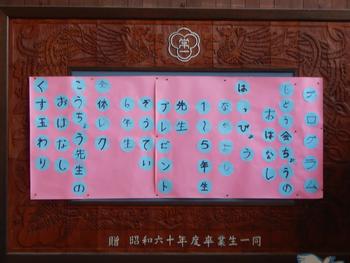 常一
プログラム
じどう会ちょうの
おはなし
はっぴょう
なかより
1〜5年生
先生
プレゼント
ぞうてい
6年生
全体レク
こうちょう先生の
おはなし
くす玉わり
贈 昭和六十年度卒業生一同